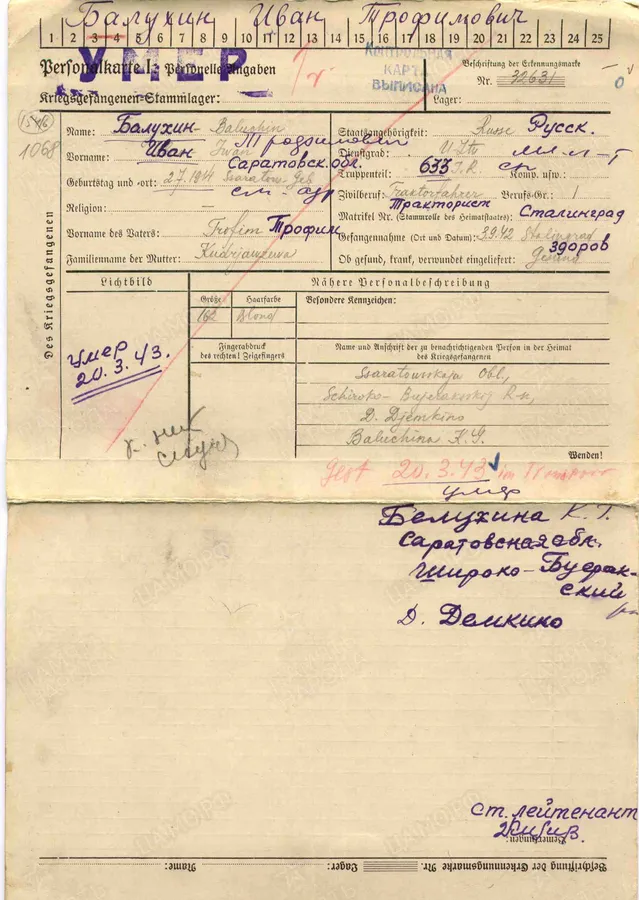 Балухин Иван Трофимович
1 2 3 4 5 6 7 8 9 10 11 12 13 14 15 16 17 18 19 20 21 22 23 24 25
УМЕР
КОНТРОЛЬНАЯ
КАРТА
ВЫПИСАНА
Personalkarte I: Personelle Angaben
Kriegsgefangenen-Stammlager:
Beschriftung der Erkennungsmarke
Nr. 32631
Lager:
1068
Des Kriegsgefangenen
Name: Балухин Baluchin
Vorname: Иван Iwan Трофимович
Geburtstag und -ort: 2.7.1914 Ssaratow. Geb Саратовск. обл.
Religion: —
Vorname des Vaters: Trofim Трофим
Familienname der Mutter: Kudrjawzewa
Staatsangehörigkeit: Russe Русск.
Dienstgrad: U. Ltn мл. л-т
Truppenteil: 633 J.R. Komp. usw.:
Zivilberuf: Traktorfahrer Berufs-Gr.: 1
Тракторист
Matrikel Nr. (Stammrolle des Heimatstaates): Сталинград
Gefangennahme (Ort und Datum): 3.9.42 Stalingrad
здоров
Ob gesund, krank, verwundet eingeliefert: Gesund
Lichtbild
умер
20.3.43.
Nähere Personalbeschreibung
Größe
Haarfarbe
Besondere Kennzeichen:
162
Blond
Fingerabdruck
des rechten! Zeigefingers
Name und Anschrift der zu benachrichtigenden Person in der Heimat
des Kriegsgefangenen
Ssaratowskaja Obl,
Schiroko-Bujerakskoj R-n,
D. Djemkino
Baluchina K.
Wenden!
Gest 20.3.43 im
умер
Белухина К. Т.
Саратовская обл.
Широко-Буерак-
ский
Д. Демкино
ст. лейтенант
Bemerkungen:
Beschriftung der Erkennungsmarke Nr. Lager: Name: